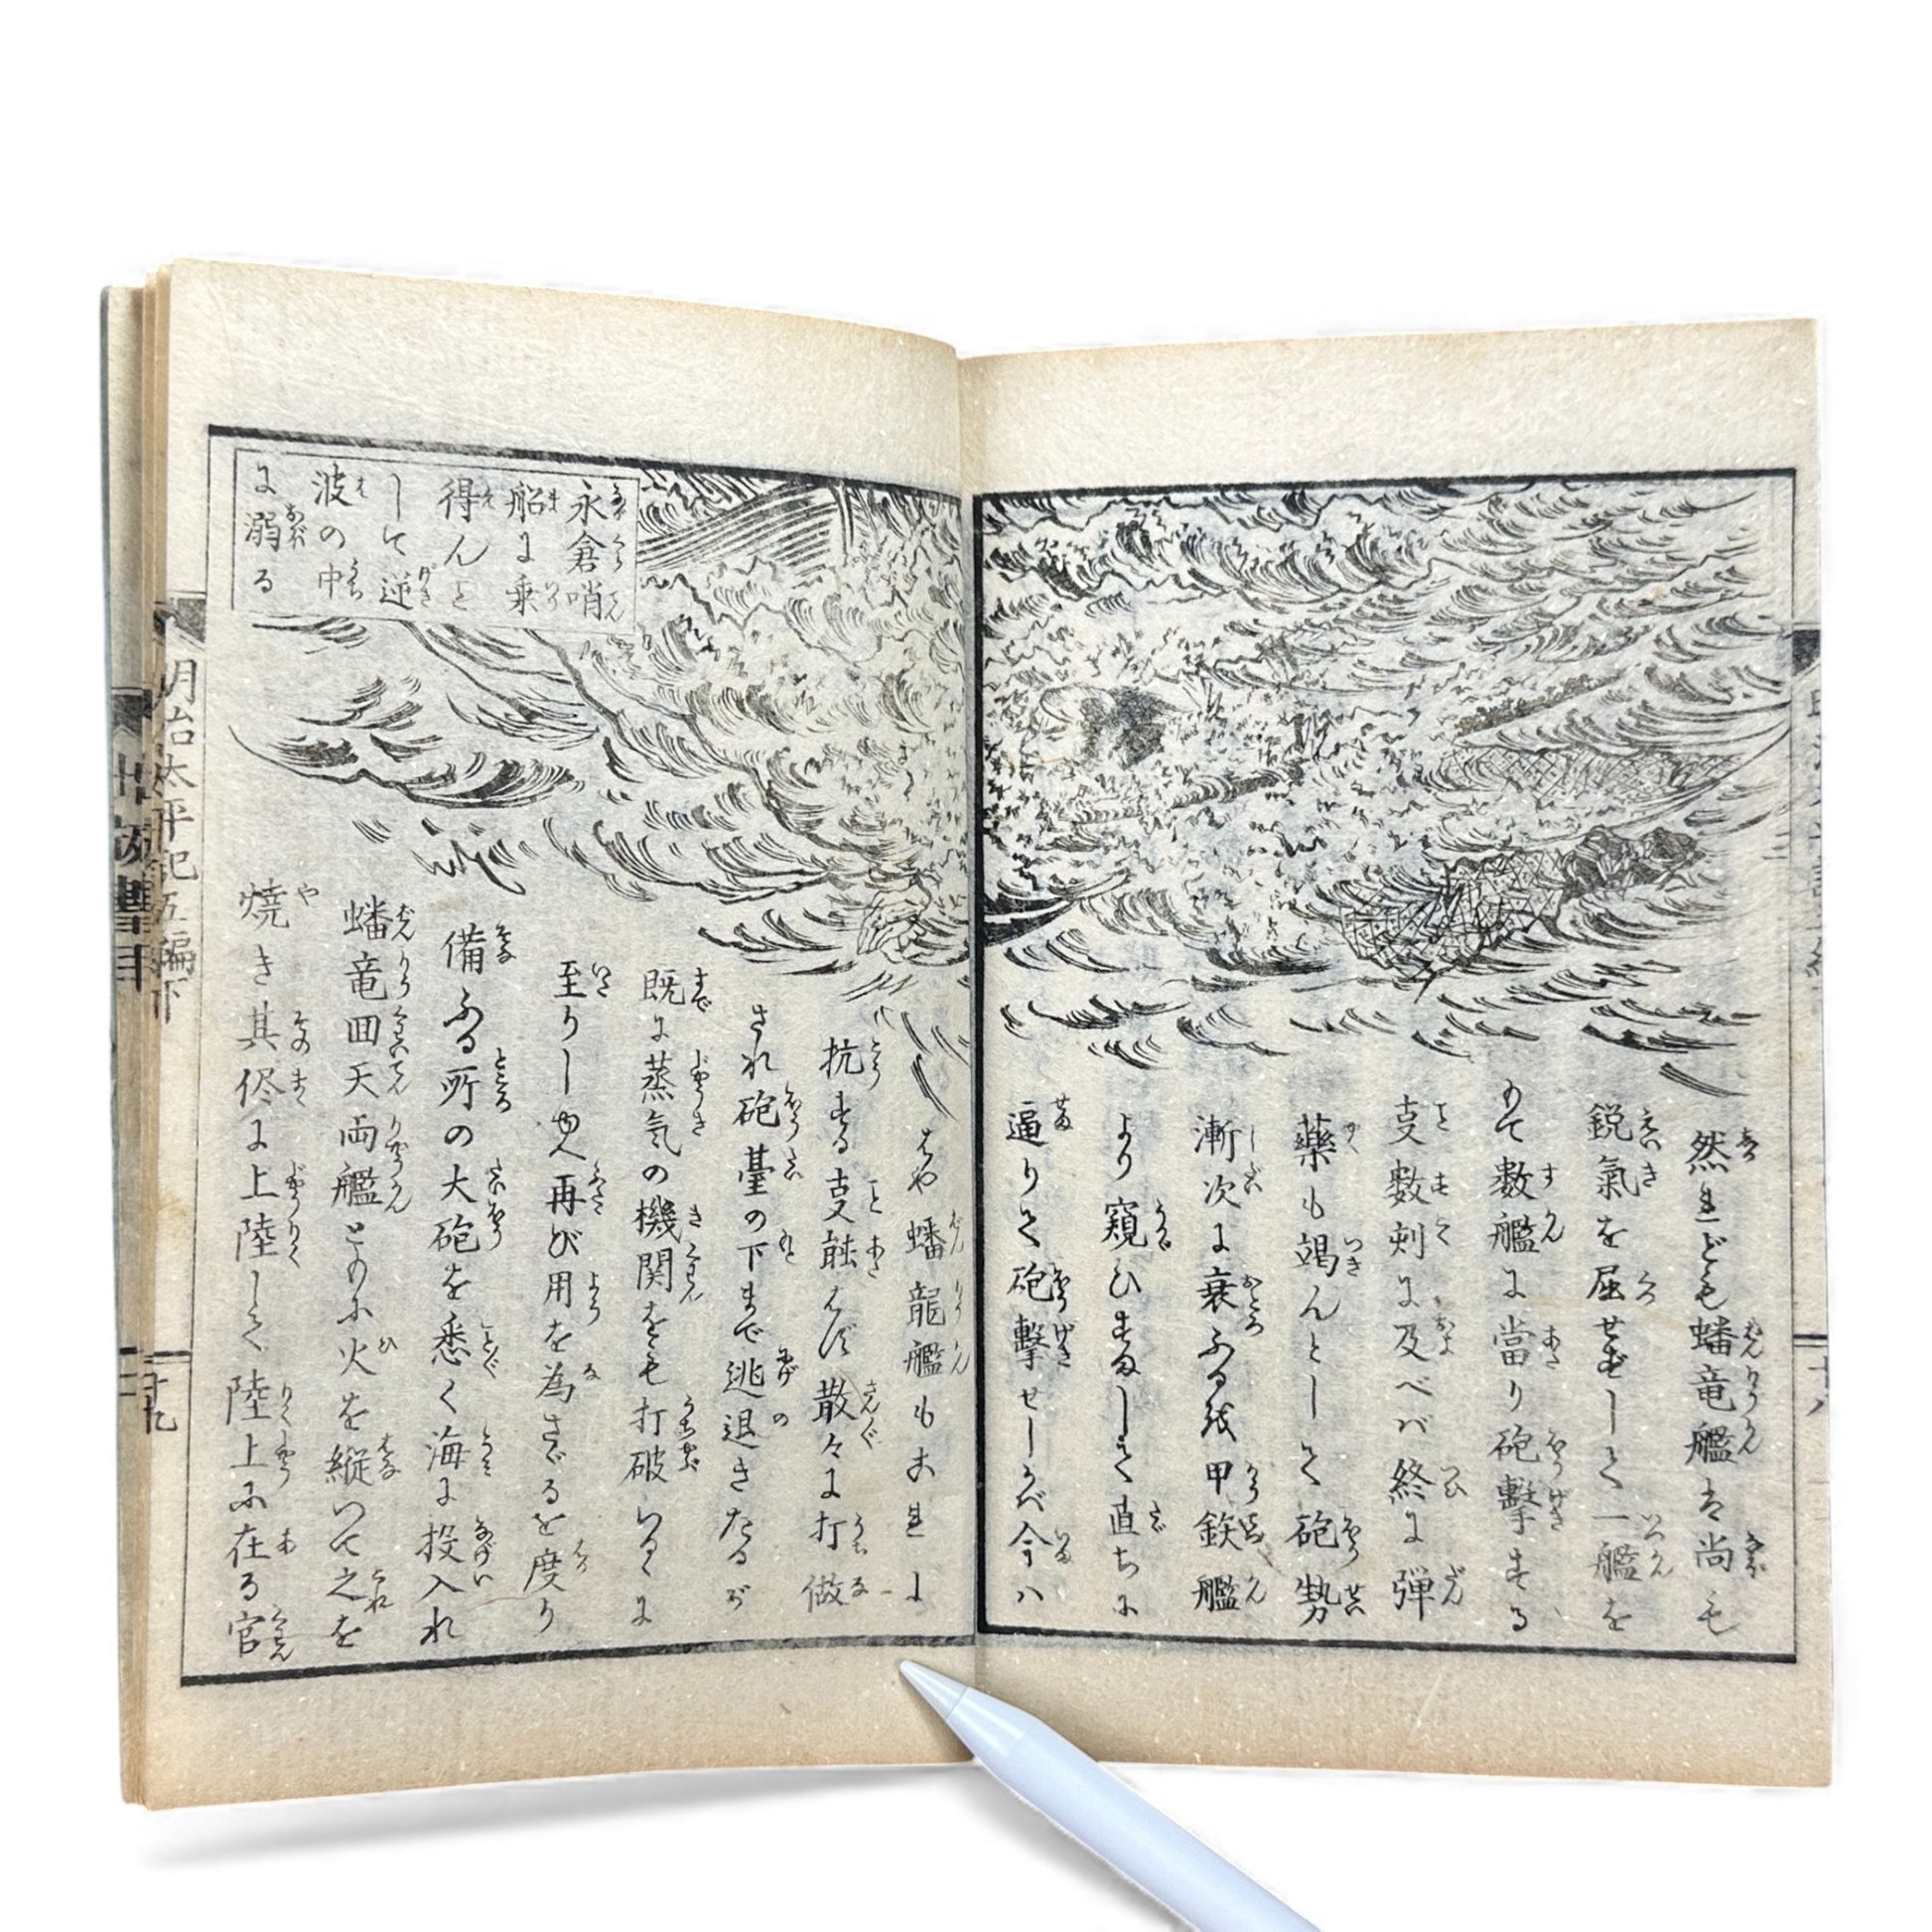 然れども蟠竜艦は尚も
鋭氣を屈せずして一艦を
もて数艦に當り砲撃する
支数刻に及べバ終に弾
藥も竭んとして砲勢
漸次に衰ふるを 甲鉄艦
より窺ひすまして直ちに
逼りて砲撃せしかバ今ハ
はや蟠龍艦もおれに
抗する支能はず散々に打做
され砲臺の下まで逃退きたるが
既に蒸気の機関をも打破らるゝに
至りしゆへ再び用を為さゞるを度り
備ふる所の大砲を悉く海に投入れ
蟠竜回天両艦ともに火を縦ついて之を
焼き其侭に上陸して陸上に在る官
永倉哨
船に乗
得んと
して逆
波の中
に溺る
明治太平記五編下
十九